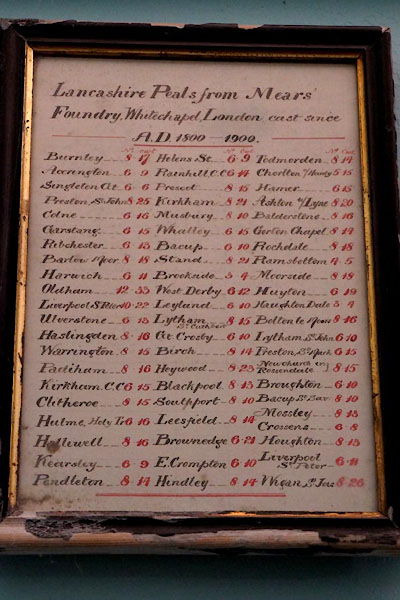 Lancashire Peals from Mears'
Foundry, Whitechapel, London cast since
A.D. 1800 – 1900.
No Cwt No Cwt No Cwt
Burnley 8 17 Helens St. 6 9 Todmorden 8 14
Accrington 6 9 Rainhill C.C 6 14 Chorlton 5 15
Singleton Gt 6 6 Prescot 8 15 Hamer 6 15
Preston, St John 8 25 Kirkham 8 21 Ashton u/Lyne 8 20
Colne 6 16 Musbury 8 10 Balderstone 8 16
Garstang 6 15 Whalley 6 15 Gorton Chapel 8 14
Ribchester 6 13 Bacup 6 10 Rochdale 8 18
Barlow Moor 8 18 Stand 8 21 Ramsbottom 4 5
Horwich 6 11 Brookside 3 4 Moorside 8 18
Oldham 12 33 West Derby 6 12 Huyton 6 19
Liverpool St Peter 10 22 Leyland 6 10 Haughton Dale 3 4
Ulverstone 6 13 Lytham St Cuthbert 8 15 Bolton le Moor 8 16
Haslingden 8 16 Gt Crosby 6 10 Lytham St John 6 10
Warrington 8 15 Birch 8 14 Preston St Mark 6 15
Padiham 8 16 Heywood 8 23 Newchurch in Rossendale 8 15
Kirkham C.C 6 15 Blackpool 8 13 Broughton 6 10
Clitheroe 8 15 Southport 8 10 Bacup St Sav 8 10
Hulme, Holy Tr 6 16 Leesfield 8 14 Mossley 8 13
Crossens 6 8
Halliwell 8 16 Brownedge 6 21 Houghton 8 13
Kearsley 6 9 E. Crompton 6 10 Liverpool St Peter 6 11
Pendleton 8 14 Hindley 8 14 Wigan St Jas 8 26